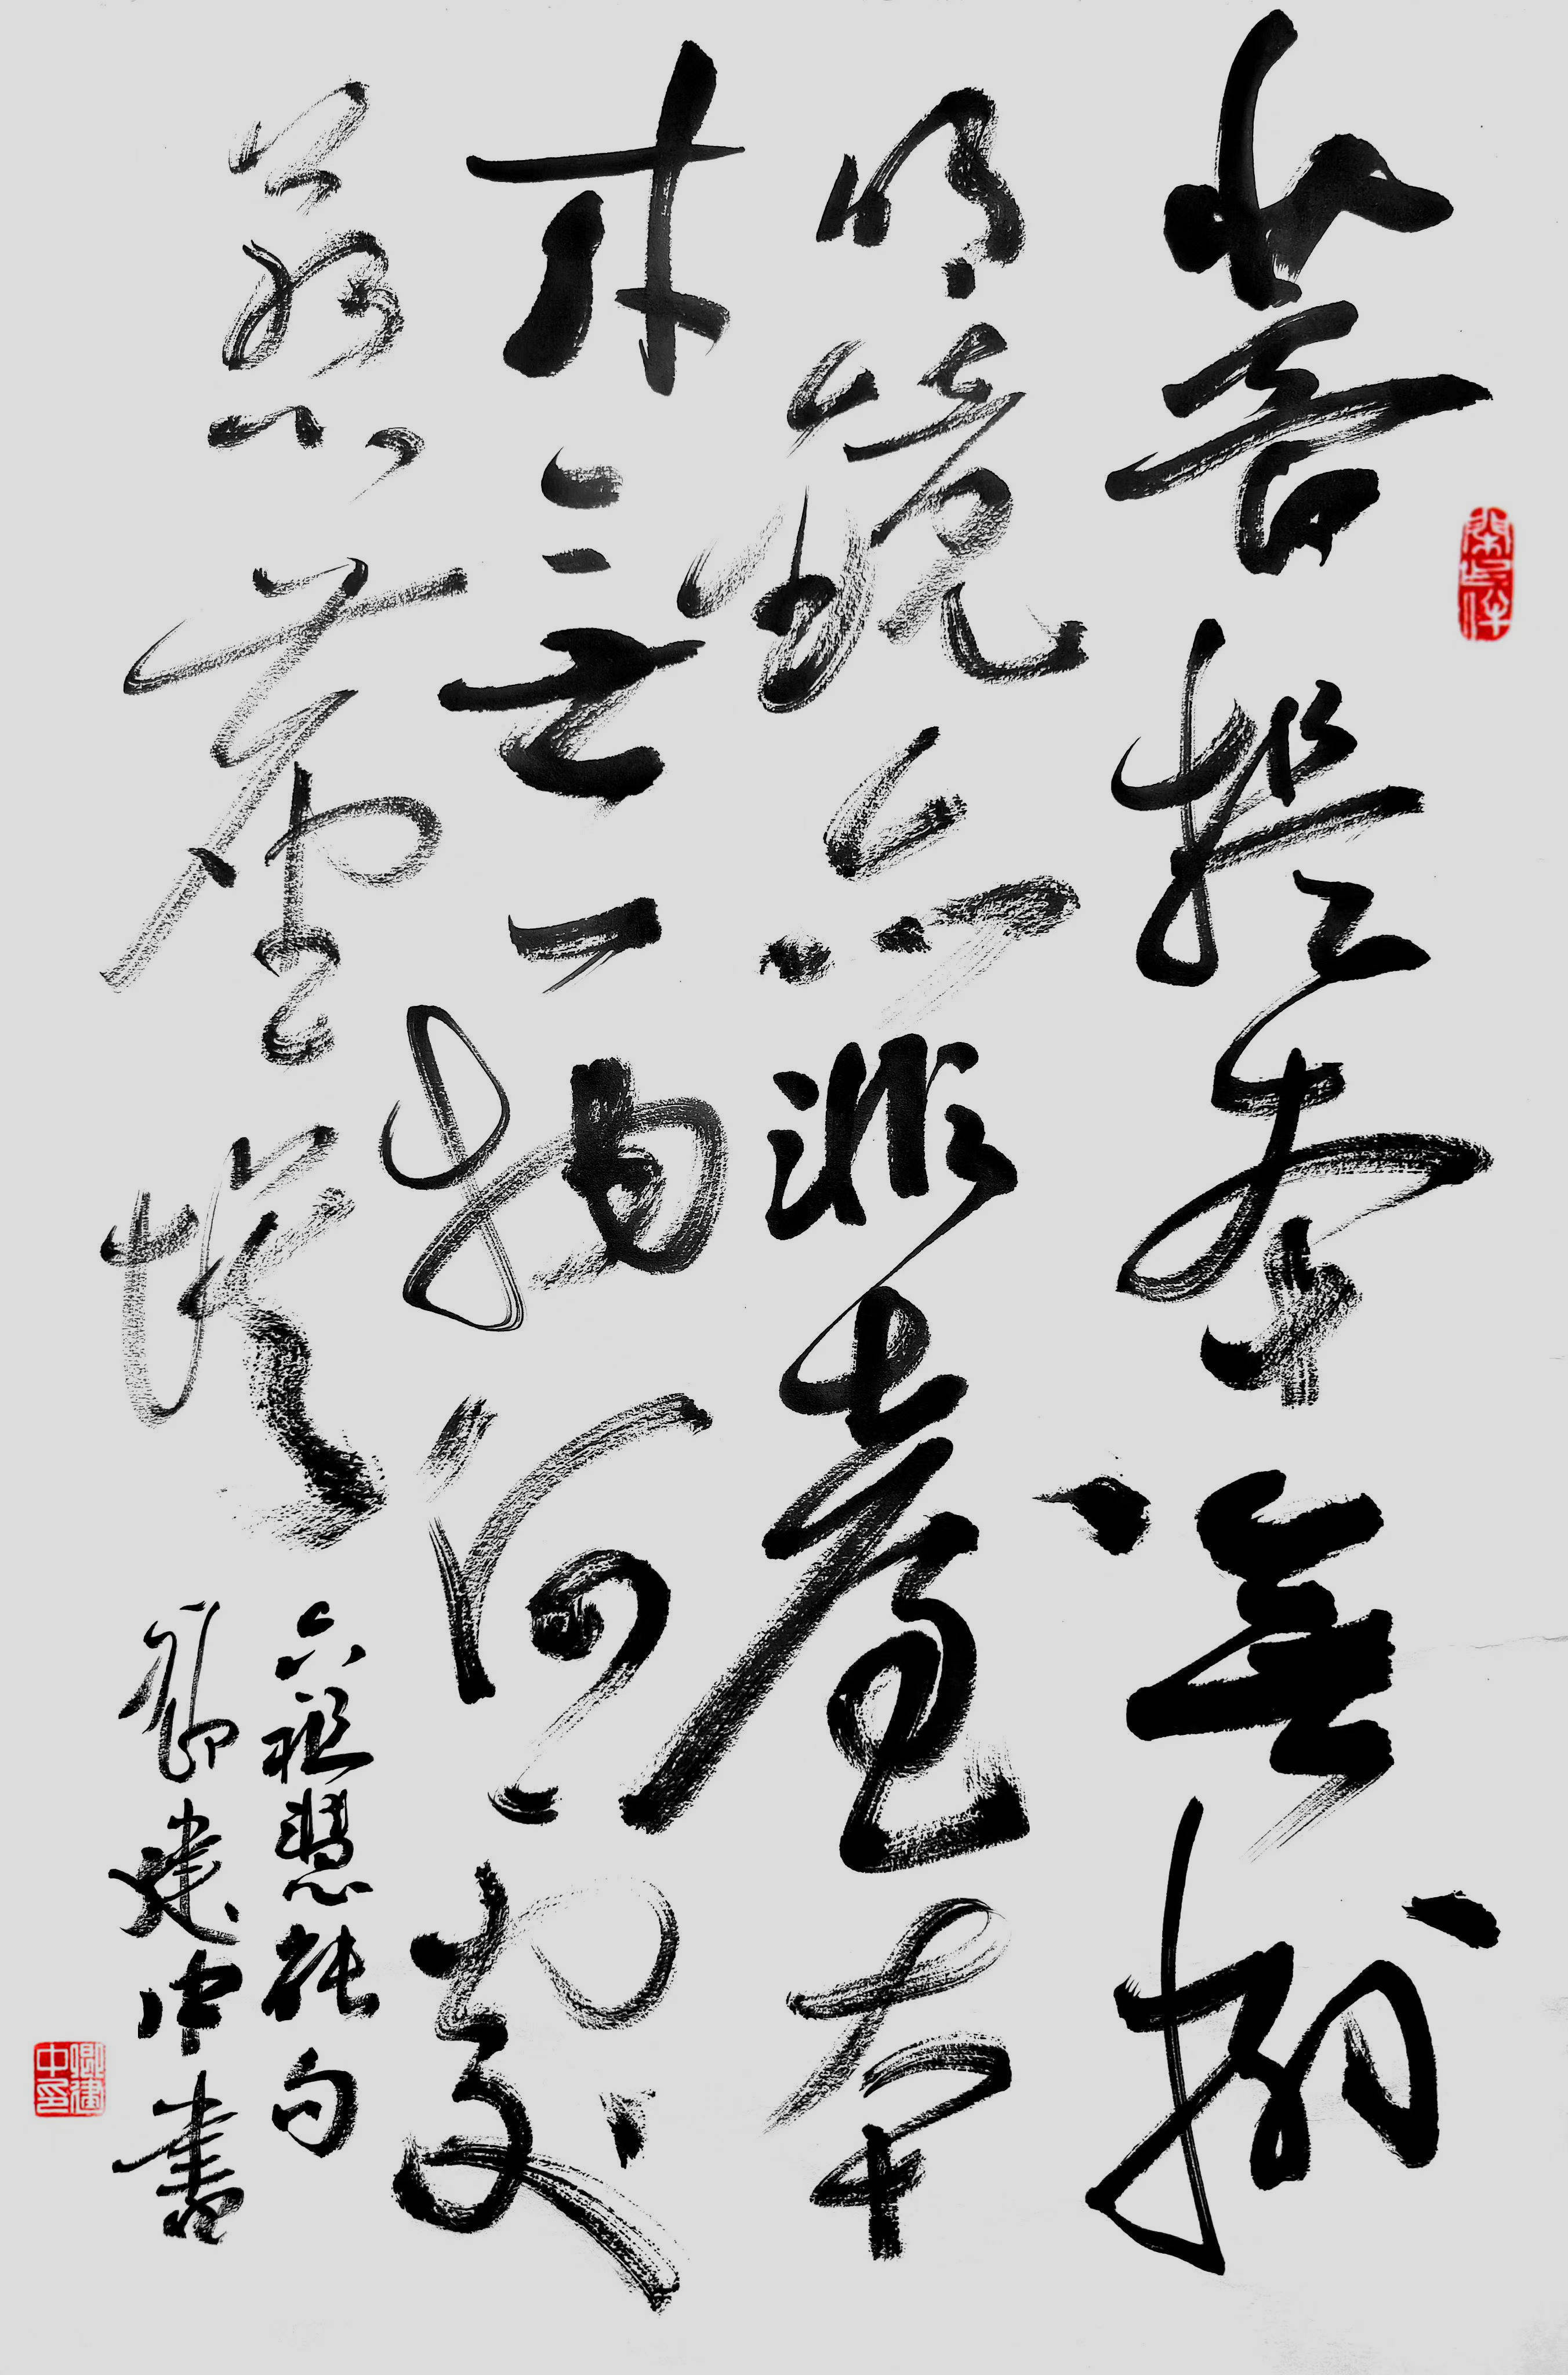 菩提本無樹
明鏡亦非臺本
來無一物何處
惹塵埃
六祖慧能句
卿建中書
卿建中印